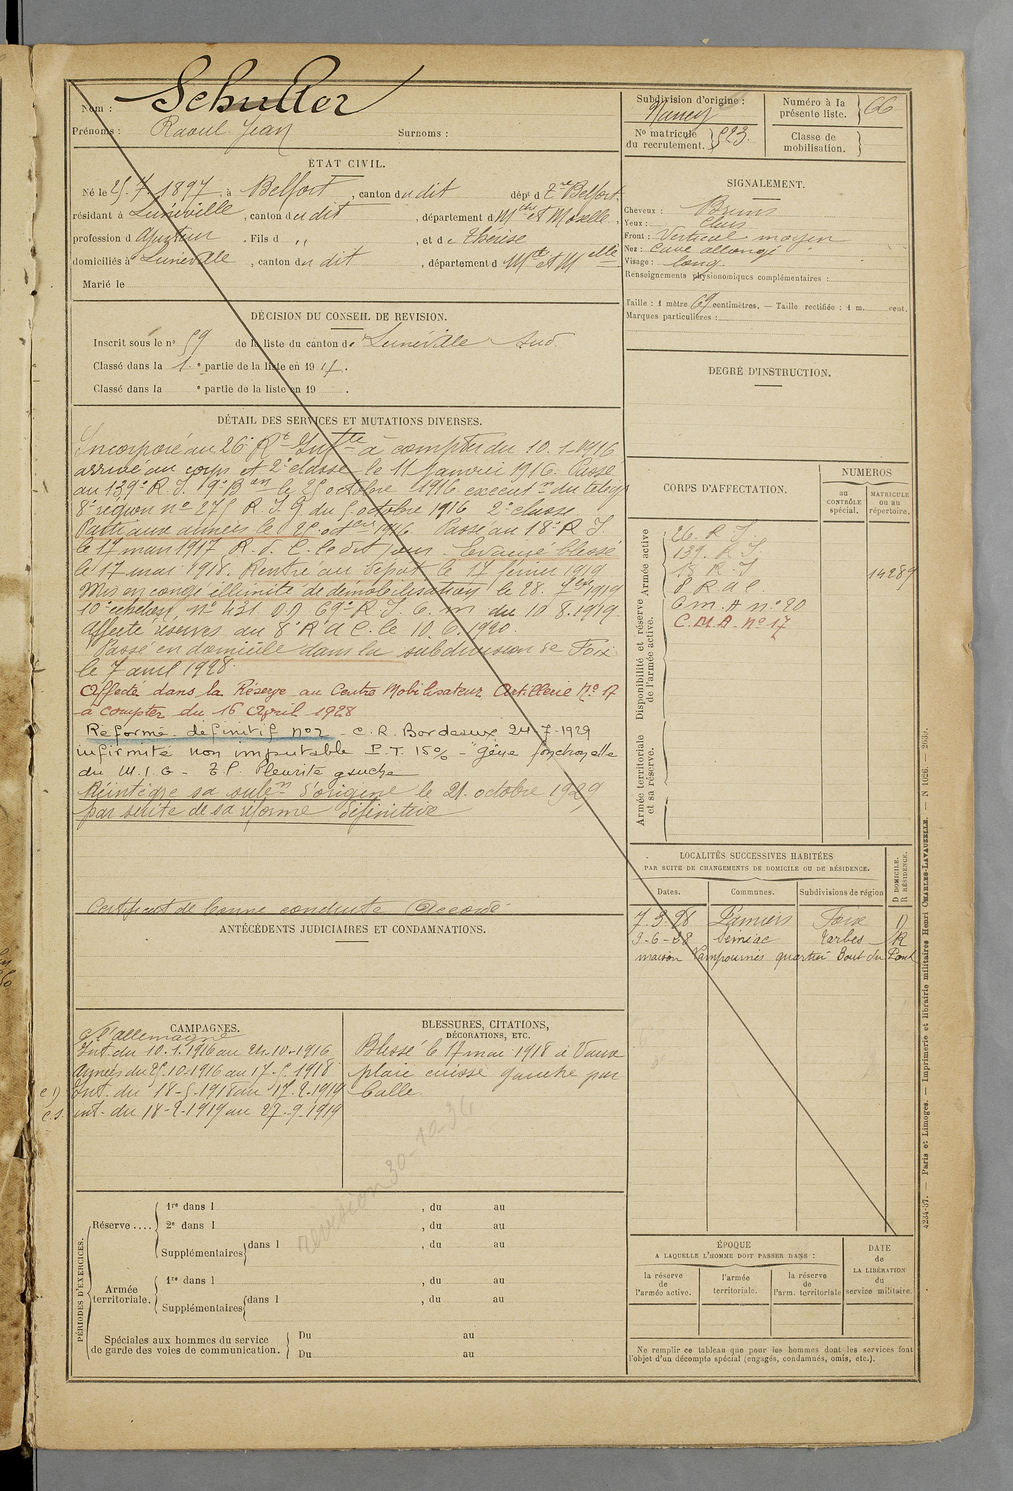 Nom : Schuller
Prénoms : Raoul Jean Surnoms :
ÉTAT CIVIL.
Né le 25.7.1897, à Belfort, canton du dit dépt d Tre Belfort.
résidant à Lunéville, canton du dit, département d Mthe et Moselle,
profession d ajusteur. Fils d ,, , et de Thérèse
domiciliés à Lunéville, canton du dit, département d Mthe et Mselle
Marié le
DÉCISION DU CONSEIL DE REVISION.
Inscrit sous le no 59 de la liste du canton de Lunéville Sud
Classé dans la 1e partie de la liste en 1917.
Classé dans la e partie de la liste en 19 .
DÉTAIL DES SERVICES ET MUTATIONS DIVERSES.
Incorporé au 26e Rt Inftie à compter du 10.1.1916
arrivé au corps et 2e classe le 11 Janvier 1916. Passé
au 139e R.I. 9e Bon le 25 octobre 1916 exécutn du télég
8e région no 275 R.I.9 du 5 octobre 1916 2e classe.
Parti aux armées le 25 octobre 1916. Passé au 18e R.I.
le 17 mars 1917 R.d.C. le dit jour. Evacué blessé
le 17 mai 1918. Rentré au dépôt le 17 février 1919
Mis en congé illimité de démobilisation le 28. 7bre 1919
10e échelon no 431 69e R.I. C.M. du 10.8.1919.
Affecté réserves du 8e R.a.C. le 10.6.1920.
Passé en domicile dans la subdivision de Foix
le 7 avril 1928.
Affecté dans la Réserve au Centre Mobilisateur Artillerie No 17
à compter du 16 Avril 1928
Réformé définitif no2 - C.R. Bordeaux, 24-7-1929
infirmité non imputable P.T. 15% - "gêne fonctionnelle
du M.I.G - T.P. Pleurite gauche
Réintègre sa subon d'origine le 21. octobre 1929
par suite de sa réforme définitive
Certificat de bonne conduite Accordé
ANTÉCÉDENTS JUDICIAIRES ET CONDAMNATIONS.
CAMPAGNES.
Ct l'allemagne
Int. du 10.1.1916 au 24.10.1916
Armées du 25.10.1916 au 17.5.1918
CD Int. du 18-5-1918 au 17.2.1919
CS int. du 18-2-1919 au 27-9-1919
BLESSURES, CITATIONS,
DÉCORATIONS, ETC.
Blessé le 17 mai 1918 à Vaux
plaie cuisse gauche par
balle
revision 30-10-36
PÉRIODES D'EXERCICES.
Réserve ....
1re dans l , du au
2e dans l , du au
Supplémentaires dans l , du au
Armée territoriale.
1re dans l , du au
Supplémentaires dans l , du au
Spéciales aux hommes du service
de garde des voies de communication.
Du au
Du au
Subdivision d'origine :
Nancy
No matricule
du recrutement. 523.
Numéro à la
présente liste. 66
Classe de
mobilisation.
SIGNALEMENT.
Cheveux : Bruns
Yeux :
Front : Vertical moyen
Nez : Cave allongé
Visage : long.
Renseignements physionomiques complémentaires :
Taille : 1 mètre 69 centimètres. — Taille rectifiée : 1 m. cent.
Marques particulières :
DEGRÉ D'INSTRUCTION.
CORPS D'AFFECTATION.
NUMÉROS
AU CONTRÔLE spécial.
MATRICULE OU AU répertoire.
Armée active
26. R I
139. R I
18 R I 14289
8 R a C
Disponibilité et réserve de l'armée active.
C.m.A no 20
C.M.A. No 17
Armée territoriale et sa réserve.
LOCALITÉS SUCCESSIVES HABITÉES
PAR SUITE DE CHANGEMENTS DE DOMICILE OU DE RÉSIDENCE.
Dates. Communes. Subdivisions de région D DOMICILE. R RÉSIDENCE.
7.3.28 Pamiers Foix D
9-6-28 Tarbes R
maison quartier Bout du Pont
ÉPOQUE
A LAQUELLE L'HOMME DOIT PASSER DANS :
la réserve de l'armée active.
l'armée territoriale.
la réserve de l'arm. territoriale
DATE
de
LA LIBÉRATION
du
service militaire.
Ne remplir ce tableau que pour les hommes dont les services font
l'objet d'un décompte spécial (engagés, condamnés, omis, etc.).
4234-37. — Paris et Limoges. — Imprimerie et librairie militaires Henri CHARLES-LAVAUZELLE. — N. 1026. — 2630.